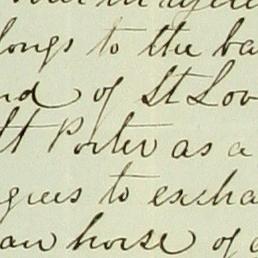 longs to the ba
nd of St Lov
tt Porter as a
grees to excha
an horse of a